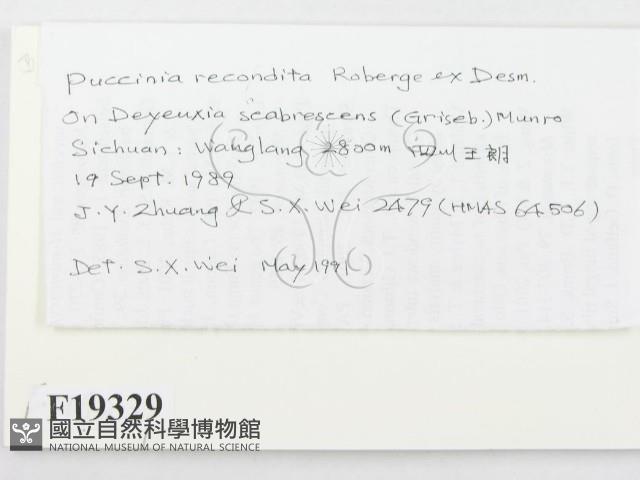 Puccinia recondita Roberge ex Desm.
On Deyeuxia scabrescens (Griseb.) Munro
Sichuan: Wanglang 2800m 四川王朗
19 Sept. 1989
J.Y. Zhuang & S.X. Wei 2479 (HMAS 64506)
Det. S.X. Wei May 1991
F19329
國立自然科學博物館
NATIONAL MUSEUM OF NATURAL SCIENCE